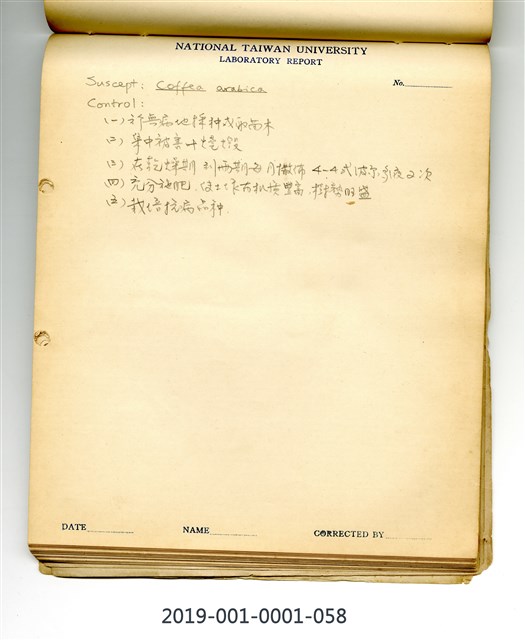 NATIONAL TAIWAN UNIVERSITY
LABORATORY REPORT
No.
Suscept: Coffea arabica
Control:
(一) 於無病地採种或取苗木
(二) 集中被害叶燒毀
(三) 在乾燥期到雨期每月撒佈 4-4式波尔多液2次
(四) 充分施肥, 使土壤有机质豐富, 樹勢旺盛
(五) 栽培抗病品种.
DATE
NAME
CORRECTED BY
2019-001-0001-058